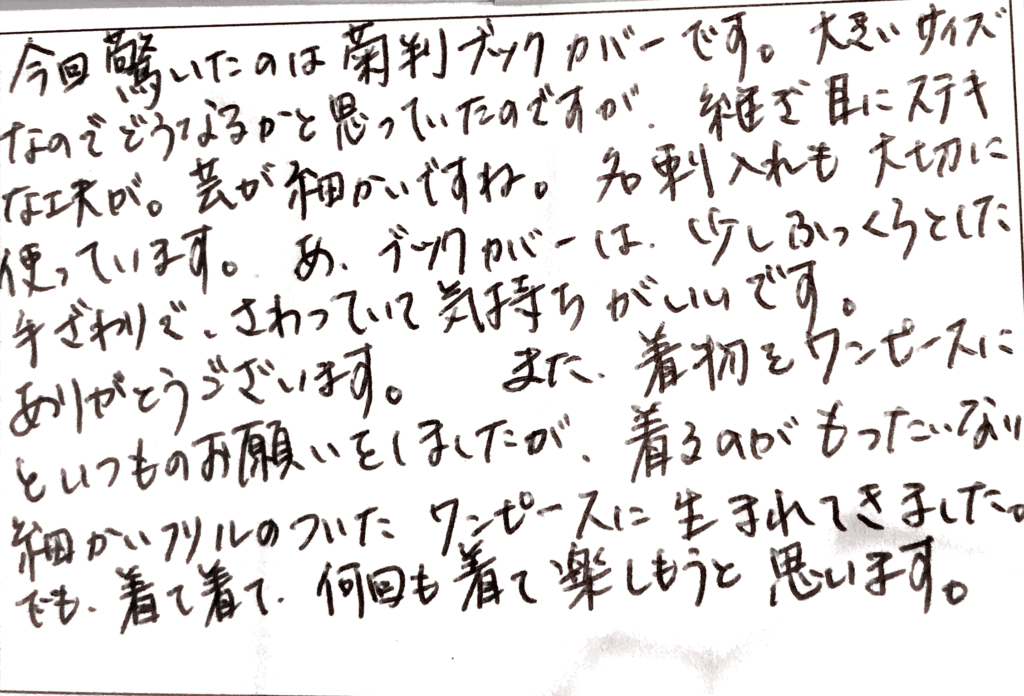 今回驚いたのは菊判ブックカバーです。大きいサイズ
なのでどうなるかと思っていたのですが、継ぎ目にステキ
な工夫が。芸が細かいですね。名刺入れも大切に
使っています。あ、ブックカバーは、少しふっくらとした
手ざわりで、さわっていて気持ちがいいです。
ありがとうございます。また、着物をワンピースに
といつものお願いをしましたが、着るのがもったいない
細かいフリルのついたワンピースに生まれてきました。
でも、着て着て、何回も着て楽しもうと思います。